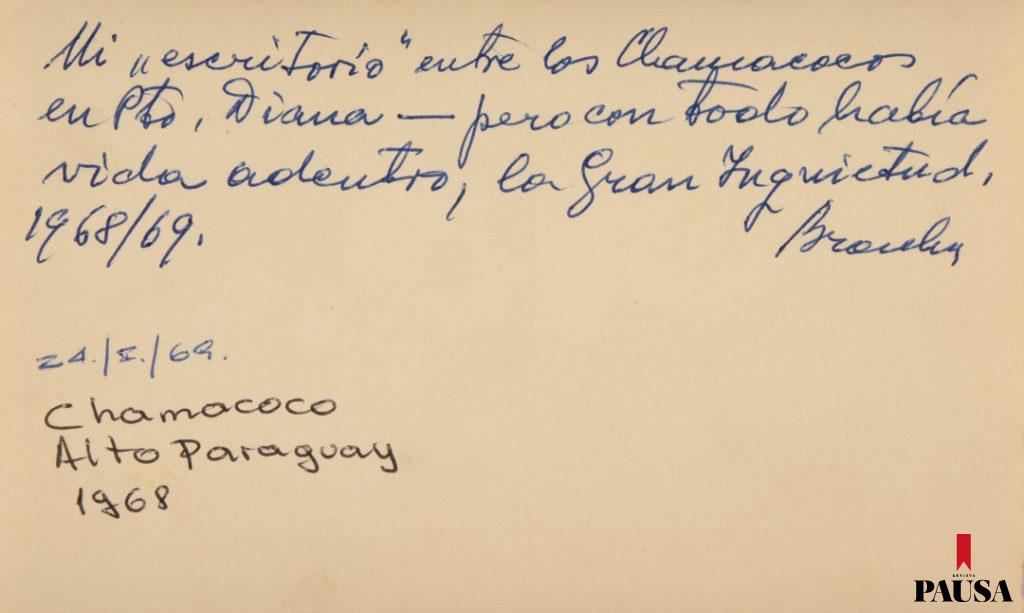 Mi „escritorio“ entre los Chamacocos
en Pto. Diana — pero con todo había
vida adentro, la Gran Inquietud,
1968/69.
24./I./69.
Chamacoco
Alto Paraguay
1968
REVISTA
PAUSA